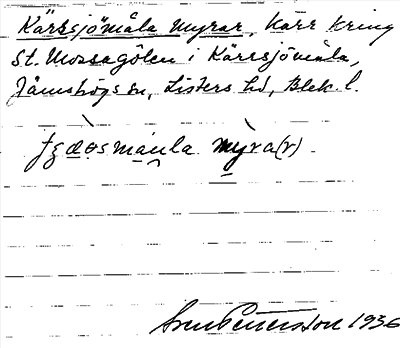 Kärrsjömåla Myrar, Kärr kring
St. Mossagölen i Kärrsjömåla,
Jämshögs sn, Listers hd, Blek. l.
myra(r).
Sven Petersson 1936